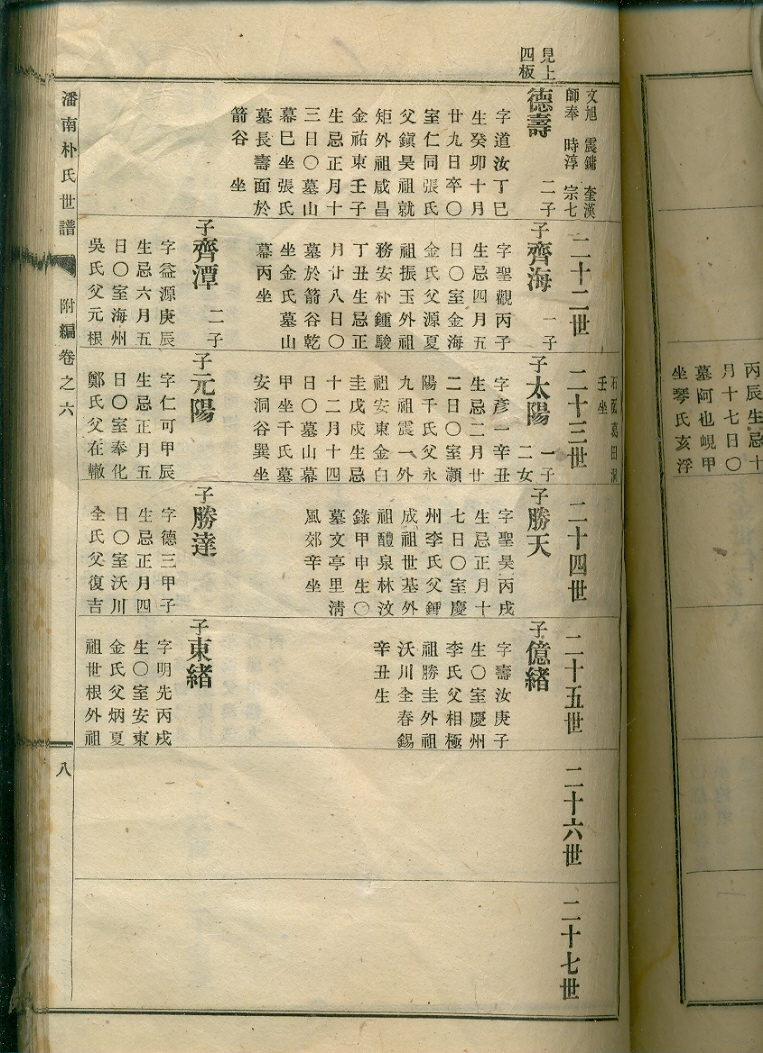 見上
四板
文旭 震鏞 奎漢
師奉 時淳 宗七
德壽 二子
字道汝丁巳
生癸卯十月
廿九日卒〇
室仁同張氏
父鎭昊祖就
矩外祖咸昌
金祐東壬子
生忌正月十
三日〇墓山
幕巳坐張氏
墓長壽面於
箭谷 坐
二十二世
子齊海 一子
字聖觀丙子
生忌四月五
日〇室金海
金氏父源夏
祖振玉外祖
務安朴鍾駿
丁丑生忌正
月廿八日〇
墓於箭谷乾
坐金氏墓山
幕丙坐
子齊潭 二子
字益源庚辰
生忌六月五
日〇室海州
吳氏父元根
石 葛田洞
壬坐
二十三世
子太陽 一子
二女
字彥一辛丑
生忌二月廿
二日〇室潁
陽千氏父永
九祖震一外
祖安東金白
圭戊戌生忌
十二月十四
日〇墓山幕
甲坐千氏墓
安洞谷巽坐
子元陽
字仁可甲辰
生忌正月五
日〇室奉化
鄭氏父在轍
二十四世
子勝天
字聖昊丙戌
生忌正月十
七日〇室慶
州李氏父鉀
成祖世基外
祖醴泉林汶
錄甲申生〇
墓文亭里淸
風郊辛坐
子勝達
字德三甲子
生忌正月四
日〇室沃川
全氏父復吉
二十五世
子億緖
字壽汝庚子
生〇室慶州
李氏父相極
祖勝圭外祖
沃川全春錫
辛丑生
子東緖
字明先丙戌
生〇室安東
金氏父炳夏
祖世根外祖
二十六世
二十七世
潘南朴氏世譜 附編卷之六 八
丙辰生忌十
月十七日〇
墓阿也峴甲
坐琴氏亥浮